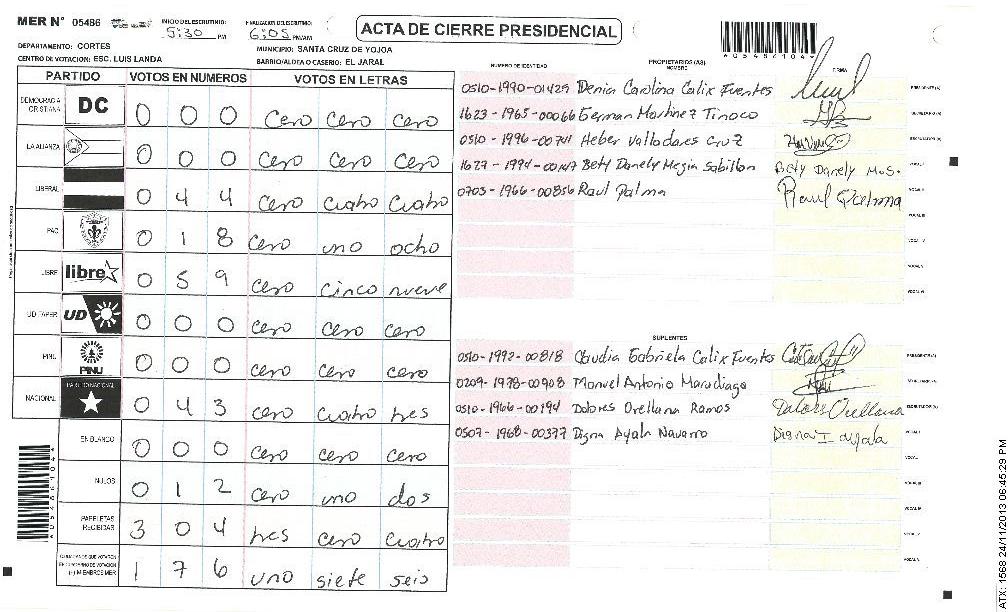 MER N° 05486
INICIO DEL ESCRUTINIO: 5:30 PM
FINALIZACION DEL ESCRUTINIO: 6:05 PM/AM
ACTA DE CIERRE PRESIDENCIAL
DEPARTAMENTO: CORTES
MUNICIPIO: SANTA CRUZ DE YOJOA
CENTRO DE VOTACION: ESC. LUIS LANDA
BARRIO/ALDEA O CASERIO: EL JARAL
PARTIDO VOTOS EN NUMEROS VOTOS EN LETRAS
DEMOCRACIA CRISTIANA DC 0 0 0 cero cero cero
LA ALIANZA 0 0 0 cero cero cero
LIBERAL 0 4 4 cero cuatro cuatro
PAC 0 1 8 cero uno ocho
LIBRE libre 0 5 9 cero cinco nueve
UD FAPER UD 0 0 0 cero cero cero
PINU PINU 0 0 0 cero cero cero
NACIONAL PARTIDO NACIONAL 0 4 3 cero cuatro tres
EN BLANCO 0 0 0 cero cero cero
NULOS 0 1 2 cero uno dos
PAPELETAS RECIBIDAS 3 0 4 tres cero cuatro
CIUDADANOS QUE VOTARON
1 7 6 uno siete seis
NUMERO DE IDENTIDAD PROPIETARIOS (AS) NOMBRE FIRMA
0510-1990-01429 Denia Carolina Calix Fuentes PRESIDENTE (A)
1623-1965-00066 German Martinez Tinoco SECRETARIO (A)
0510-1996-00741 Heber Valladares Cruz ESCRUTADOR (A)
1627-1994-00147 Bety Danely Mejia Sabillon Bety Danely M.S. VOCAL I
0703-1966-00856 Raul Palma Raul Palma VOCAL II
VOCAL III
VOCAL IV
VOCAL V
VOCAL VI
SUPLENTES
0510-1992-00818 Claudia Gabriela Calix Fuentes PRESIDENTE (A)
0209-1978-00908 Manuel Antonio SECRETARIO (A)
0510-1966-00194 Dolores Orellana Ramos Dolores Orellana ESCRUTADOR (A)
0507-1968-00377 Digna Ayala Navarro VOCAL I
VOCAL II
VOCAL III
VOCAL IV
VOCAL V
VOCAL VI
A05486104
ATX: 1568 24/11/2013 06:45:29 PM